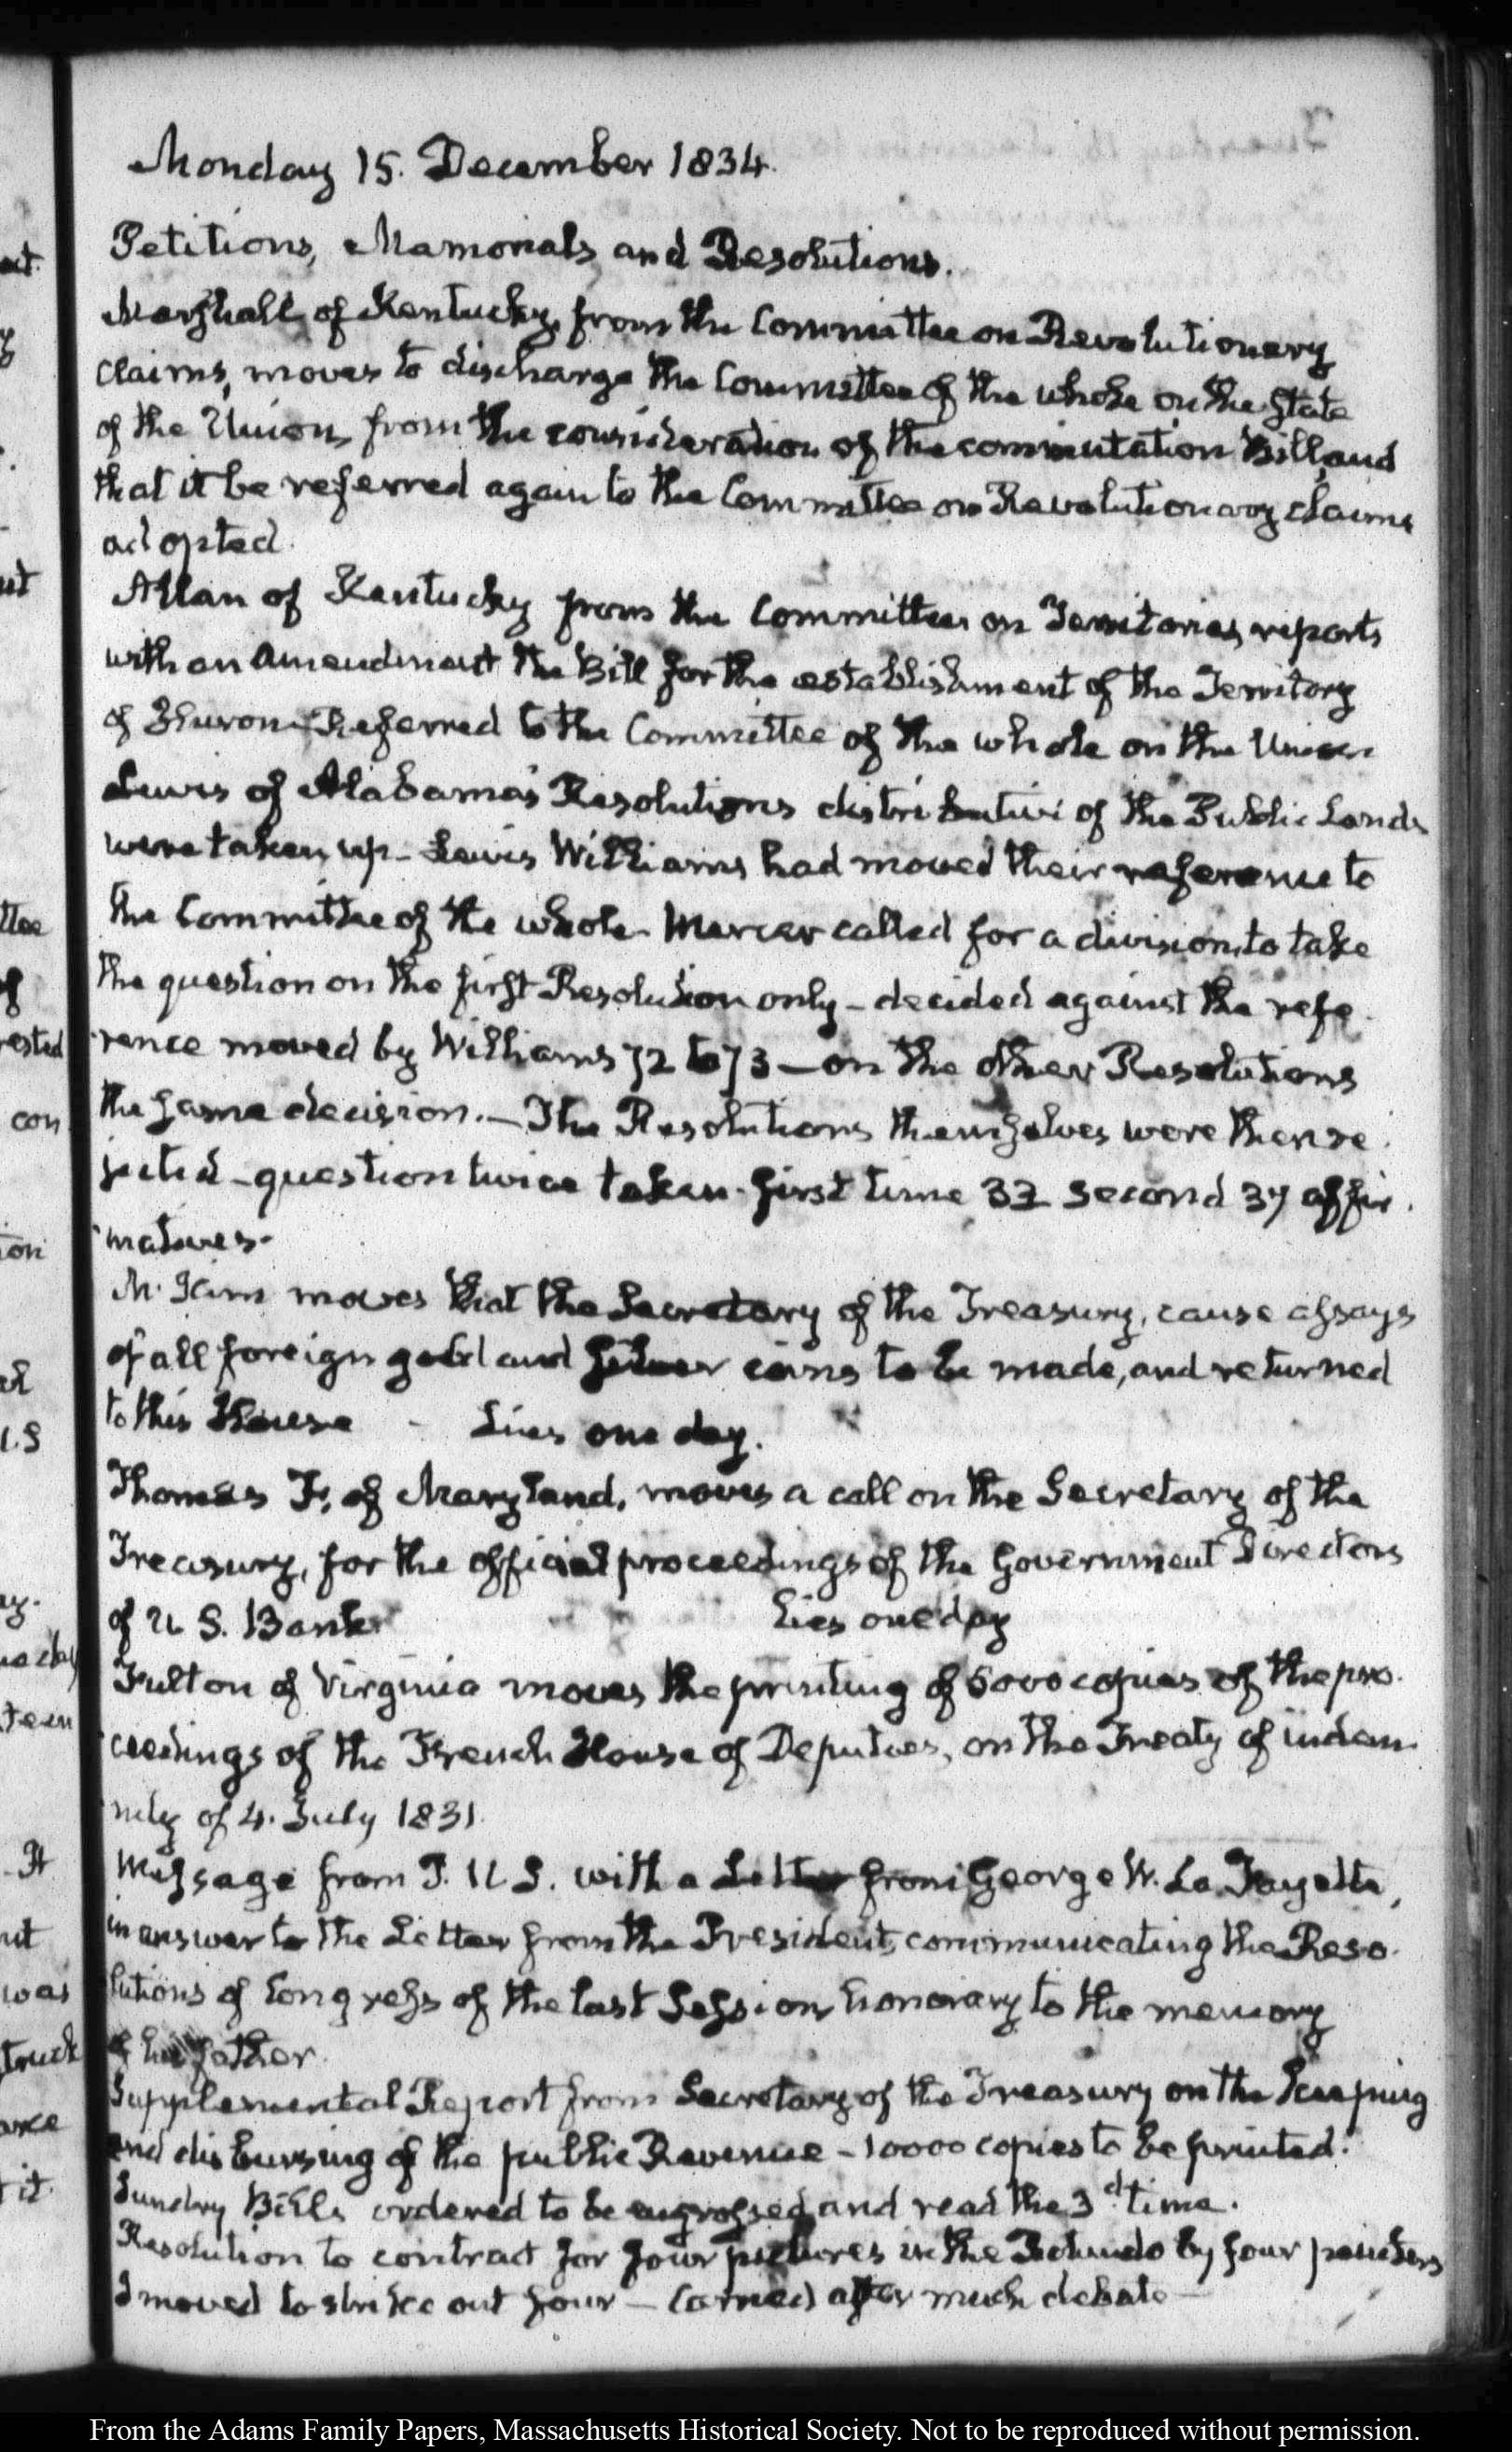 Monday 15. December 1834.
Petitions, Memorials and Resolutions.
Marshall of Kentucky, from the Committee on Revolutionary
claims, moves to discharge the Committee of the whole on the State
of the Union, from the consideration of the commutation Bill, and
that it be referred again to the Committee on Revolutionary claims
adopted.
Allan of Kentucky from the Committee on Territories, reports
with an amendment the Bill for the establishment of the Territory
of Huron — Referred to the Committee of the whole on the Union
Lewis of Alabama's Resolutions distributive of the Public Lands
were taken up — Lewis Williams had moved their reference to
the Committee of the whole. Mercer called for a division, to take
the question on the first Resolution only — decided against the refe-
rence moved by Williams 72 to 73 — on the other Resolutions
the same decision. — The Resolutions themselves were then re-
jected — question twice taken. first time 32 second 37 affir-
matives —
McKim moves that the Secretary of the Treasury, cause assays
of all foreign gold and silver coins to be made, and returned
to this House - Lies one day.
Thomas F. of Maryland, moves a call on the Secretary of the
Treasury, for the official proceedings of the Government Directors
of U. S. Bank Lies one day
Fulton of Virginia moves the printing of 5000 copies of the pro-
ceedings of the French House of Deputies, on the Treaty of indem-
nity of 4. July 1831.
Message from P. U S. with a Letter from George W. La Fayette,
in answer to the Letter from the President, communicating the Reso-
lutions of Congress of the last Session, honorary to the memory
of his father.
Supplemental Report from Secretary of the Treasury on the keeping
and disbursing of the public Revenue — 10000 copies to be printed.
Sundry Bills ordered to be engrossed, and read the 3d. time.
Resolution to contract for four pictures in the Rotundo by four painters
I moved to strike out four — Carried after much debate —
ttee
rested
con
ion
U.S
It
ut
was
truck
it
From the Adams Family Papers, Massachusetts Historical Society. Not to be reproduced without permission.